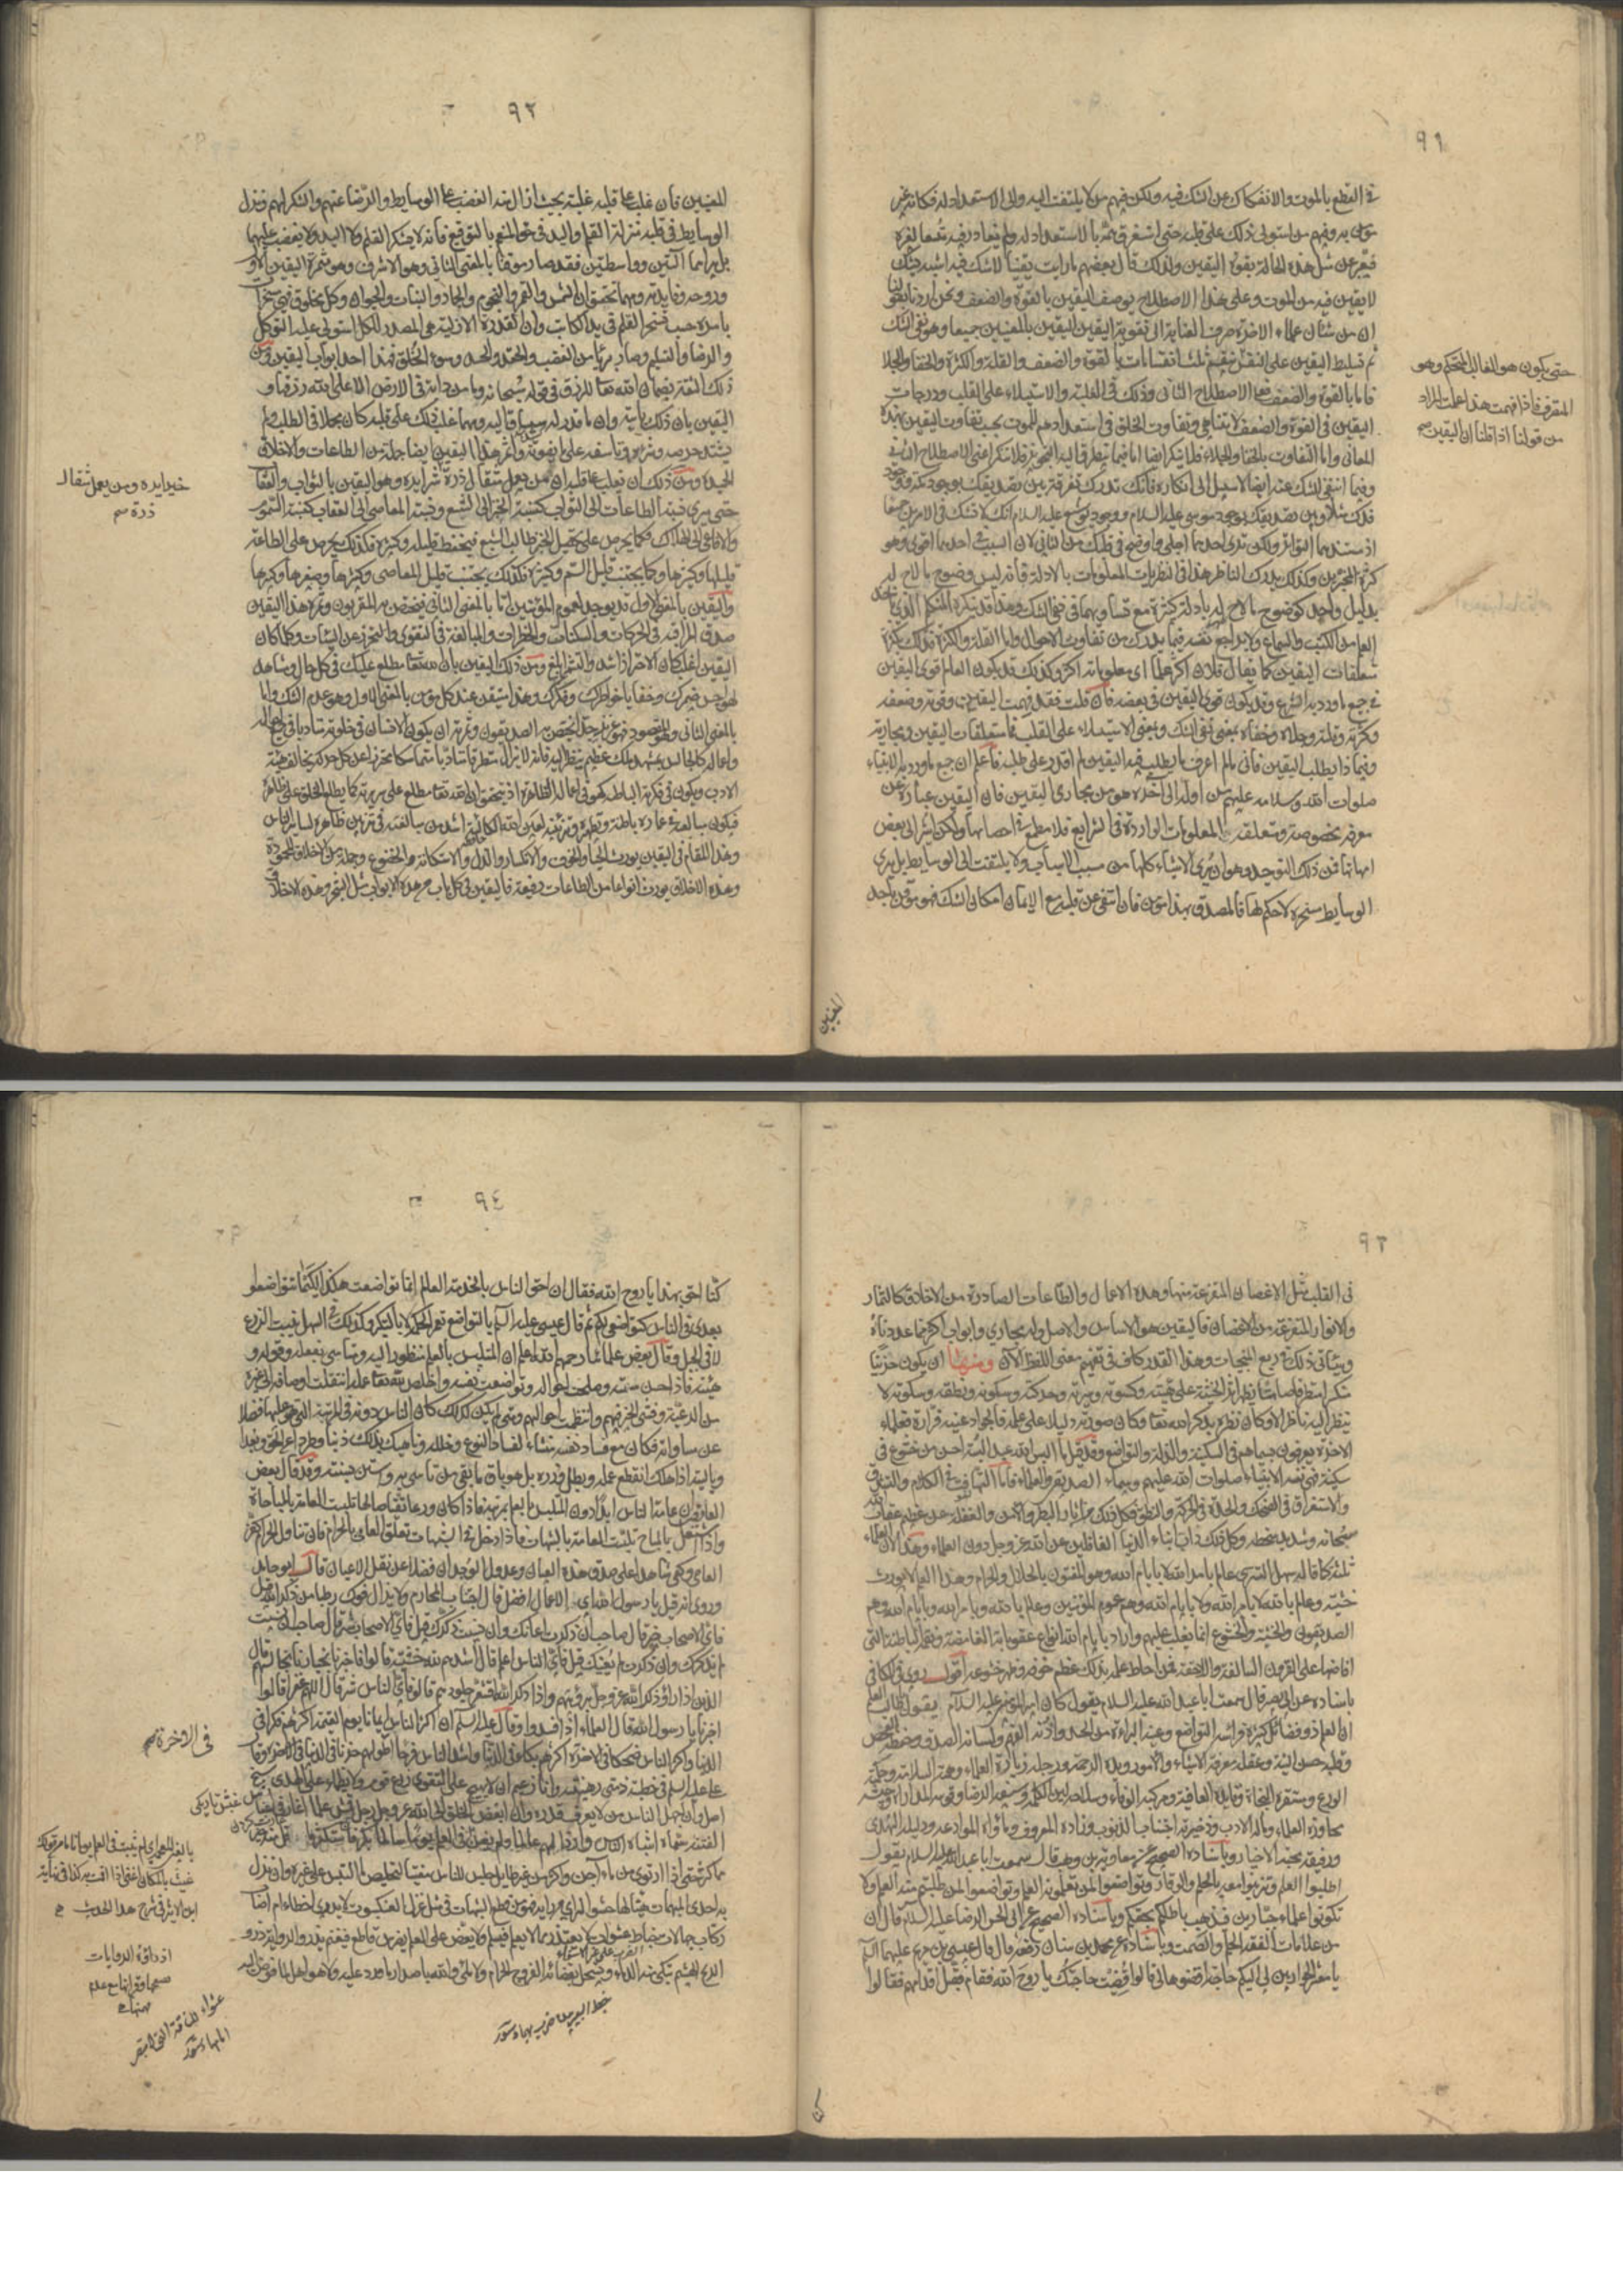 ٩١
في القطع بالموت والانفكاك عن الشك فيه ولكن فيهم من لا يلتفت اليه والى الاستعداد له فكانه غير
موقن به ومنهم من استولى ذلك على قلبه حتى استغرق همه بالاستعداد له ولم يغادر فيه متسعا لغيره
فيعبر عن مثل هذه الحالة بقوة اليقين ولذلك قال بعضهم ما رايت يقينا لا شك فيه اشبه بشك
لا يقين فيه من الموت وعلى هذا الاصطلاح يوصف اليقين بالقوة والضعف ونحن اردنا بقولنا
ان من شأن علماء الاخرة صرف العناية الى تقوية اليقين اليقين بالمعنيين جميعا وهو نفى الشك
ثم تسليط اليقين على النفس
حتى يكون هو الغالب المتحكم وهو
المتصرف فاذا فهمت هذا علمت المراد
من قولنا اذا قلنا ان اليقين
ينقسم ثلث انقسامات بالقوة والضعف والقلة والكثرة والخفا والجلا
فاما بالقوة والضعف فعلى الاصطلاح الثاني وذلك في الغلبة والاستيلاء على القلب ودرجات
اليقين في القوة والضعف لا يتناهى وتفاوت الخلق في استعدادهم للموت بحسب تفاوت اليقين بهذه
المعاني واما التفاوت بالخفا والجلاء فلا ينكر ايضا اما فيما يتطرق اليه التجويز فلا ينكر اعنى الاصطلاح الثاني
وفيما انتفى الشك عنه ايضا لا سبيل الى انكاره فانك تدرك تفرقة بين تصديقك بوجود مكة ووجود
فدك مثلا وبين تصديقك بوجود موسى عليه السلام ووجود يوشع عليه السلام انك لا تشك في الامرين جميعا
اذ مستندهما التواتر ولكن ترى احدهما اجلى واوضح في قلبك من الثاني لان السبب في احدهما اقوى وهو
كثرة المخبرين وكذلك يدرك الناظر هذا في النظريات المعلومات بالادلة فانه ليس وضوح ما لاح له
بدليل واحد كوضوح ما لاح له بادلة كثيرة مع تساويهما في نفي الشك وهذا قد ينكره المتكلم الذي ياخذ
العلم من الكتب والسماع ولا يراجع نفسه فيما يدرك من تفاوت الاحوال واما القلة والكثرة فذلك بكثرة
متعلقات اليقين كما يقال فلان اكثر علما اى معلوماته اكثر وكذلك قد يكون العالم قوى اليقين
في جميع ما ورد به الشرع وقد يكون قوى اليقين في بعضه فان قلت فقد فهمت اليقين وقوته وضعفه
وكثرته وقلته وجلاه وخفاه بمعنى نفى الشك وبمعنى الاستيلاء على القلب فما متعلقات اليقين ومجاريه
وفيما ذا يطلب اليقين فاني ما لم اعرف ما يطلب فيه اليقين لم اقدر على طلبه فاعلم ان جميع ما ورد به الانبياء
صلوات الله وسلامه عليهم من اوله الى آخره هو من مجاري اليقين فان اليقين عبارة عن
معرفة مخصوصة ومتعلقه المعلومات الواردة في الشرايع فلا مطمع في احصائها ولكن اشير الى بعض
امهاتها فمن ذلك التوحيد وهو ان يرى الاشياء كلها من مسبب الاسباب ولا يلتفت الى الوسايط بل يرى
الوسايط مسخرة لا حكم لها فالمصدق بهذا موقن فان انتفى عن قلبه مع الايمان امكان الشك فهو موقن باحد
المعنيين
٩٢
المعنيين فان غلب على قلبه غلبة بحيث ازال عنه الغضب على الوسايط والرضا عنهم والشكر لهم فنزل
الوسايط في قلبه منزلة القلم واليد في حق المنعم بالتوقيع فانه لا يشكر القلم ولا اليد ولا يغضب عليهما
بل يراهما آلتين وواسطتين فقد صار موقنا بالمعنى الثاني وهو الاشرف وهو ثمرة اليقين الاول
وروحه وفايدته ومهما تحقق ان الشمس والقمر والنجوم والجماد والنبات والحيوان وكل مخلوق فهى مسخرات
بامره حسب تسخر القلم في يد الكاتب وان القدرة الازلية هي المصدر للكل استولى عليه التوكل
والرضا والتسليم وصار بريئا من الغضب والحقد والحسد وسوء الخلق فهذا احد ابواب اليقين ومن
ذلك الثقة بضمان الله تعا للرزق في قوله سبحانه وما من دابة في الارض الا على الله رزقها و
اليقين بان ذلك ياتيه وان ما قدر له سيساق اليه ومهما غلب ذلك على قلبه كان مجملا في الطلب ولم
يشتد حرصه وشرهه وتاسفه على ما يفوته واثمر هذا اليقين ايضا جملة من الطاعات والاخلاق
الحميدة ومن ذلك ان يغلب على قلبه ان من يعمل مثقال ذرة
خيرا يره ومن يعمل مثقال
ذرة
شرا يره وهو اليقين بالثواب والعقاب
حتى يرى نسبة الطاعات الى الثواب كنسبة الخبز الى الشبع ونسبة المعاصى الى العقاب كنسبة السموم
والافاعي الى الهلاك فكما يحرص على تحصيل الخبز طالب الشبع فيحفظ قليله وكثيره فكذلك يحرص على الطاعة
قليلها وكثيرها وكما يجتنب قليل السم وكثيره فكذلك يجتنب قليل المعاصى وكثيرها وصغيرها وكبيرها
واليقين بالمعنى الاول قد يوجد لعموم المؤمنين اما بالمعنى الثاني فيختص به المقربون وثمرة هذا اليقين
صدق المراقبة في الحركات والسكنات والخطرات والمبالغة في التقوى والتحرز عن السيئات وكلما كان
اليقين اغلب كان الاحتراز اشد والتشمر ابلغ ومن ذلك اليقين بان الله تعا مطلع عليك في كل حال ومشاهد
لهواجس ضميرك وخفايا خواطرك وفكرك وهذا متيقن عند كل مؤمن بالمعنى الاول وهو عدم الشك واما
بالمعنى الثاني وهو المقصود فهو عزيز جدا يختص به الصديقون وثمرته ان يكون الانسان في خلوته متادبا في جميع احواله
واعماله كالجالس بمشهد ملك عظيم ينظر اليه فانه لا يزال مطرقا متادبا متماسكا محترزا عن كل حركة تخالف هيئة
الادب ويكون في فكرته الباطنة كهو في اعماله الظاهرة اذ يتحقق ان الله تعا مطلع على سريرته كما يطلع الخلق على ظاهره
فيكون مبالغته في عمارة باطنه وتطهيره وتزيينه لعين الله الكالئة اشد من مبالغته في تزيين ظاهره لساير الناس
وهذا المقام في اليقين يورث الحيا والخوف والانكسار والذل والاستكانة والخضوع وجملة من الاخلاق المحمودة
وهذه الاخلاق يورث انواعا من الطاعات رفيعة فاليقين في كل باب من هذه الابواب مثل الشجرة وهذه الاخلاق
٩٣
في القلب مثل الاغصان المتفرعة منها وهذه الاعمال والطاعات الصادرة من الاخلاق كالثمار
والانوار المتفرعة من الاغصان فاليقين هو الاساس والاصل وله مجاري وابواب اكثر مما عددناه
وسيأتي ذلك في ربع المنجيات وهذا القدر كاف في تفهيم معنى اللفظ الآن ومنها ان يكون حزينا
منكسرا مطرقا صامتا يظهر اثر الخشية على هيئته وكسوته وسيرته وحركته وسكونه ونطقه وسكوته لا
ينظر اليه ناظر الا وكان نظره يذكر الله تعا وكان صورته دليلا على عمله فالجواد عينه فراره فعلماء
الاخرة يعرفون بسيماهم في السكينة والذلة والتواضع وقد قيل ما البس الله عبدا لبسة احسن من خشوع في
سكينة فهى لبسة الانبياء صلوات الله عليهم وسيماء الصديقين والعلماء فاما التهافت في الكلام والتشدق
والاستغراق في الضحك والحدة في الحركة والنطق فكل ذلك من اثار البطر والامن والغفلة عن عظيم عقاب الله
سبحانه وشديد سخطه وكل ذلك داب ابناء الدنيا الغافلين عن الله عز وجل دون العلماء وهذا لان العلماء
ثلثة كما قاله سهل التسترى عالم بامر الله لا بايام الله وهو المفتون بالحلال والحرام وهذا العلم لا يورث
خشية وعالم بالله لا بامر الله ولا بايام الله وهم عموم المؤمنين وعالم بالله وبامر الله وبايام الله وهم
الصديقون والخشية والخشوع انما يغلب عليهم واراد بايام الله انواع عقوباته الغامضة ونعمه الباطنة التي
افاضها على القرون السالفة واللاحقة فمن احاط علمه بذلك عظم خوفه وظهر خشوعه اقول روى في الكافي
باسناده عن ابى بصير قال سمعت ابا عبد الله عليه السلام يقول كان امير المؤمنين عليه السلام يقول يا طالب العلم
ان العلم ذو فضائل كثيرة فراسه التواضع وعينه البراءة من الحسد واذنه الفهم ولسانه الصدق وحفظه الفحص
وقلبه حسن النية وعقله معرفة الاشياء والامور ويده الرحمة ورجله زيارة العلماء وهمته السلامة وحكمته
الورع ومستقره النجاة وقايده العافية ومركبه الوفاء وسلاحه لين الكلمة وسيفه الرضا وقوسه المداراة وجيشه
محاورة العلماء وماله الادب وذخيرته اجتناب الذنوب وزاده المعروف وماؤه الموادعة ودليله الهدى
ورفيقه محبة الاخيار وباسناده الصحيح عن معاوية بن وهب قال سمعت ابا عبد الله عليه السلام يقول
اطلبوا العلم وتزينوا معه بالحلم والوقار وتواضعوا لمن تعلمونه العلم وتواضعوا لمن طلبتم منه العلم ولا
تكونوا علماء جبارين فيذهب باطلكم بحقكم وباسناده الصحيح عن ابى الحسن الرضا عليه السلام قال ان
من علامات الفقه الحلم والصمت وباسناده عن محمد بن سنان رفعه قال قال عيسى بن مريم عليهما السلم
يا معشر الحواريين لى اليكم حاجة اقضوها لى قالوا قضيت حاجتك يا روح الله فقام فقبل اقدامهم فقالوا
كنا
٩٤
كنا احق بهذا يا روح الله فقال ان احق الناس بالخدمة العالم انما تواضعت هكذا لكيما تتواضعوا
بعدى في الناس كتواضعي لكم ثم قال عيسى عليه السلم بالتواضع تعمر الحكمة لا بالتكبر وكذلك في السهل ينبت الزرع
لا في الجبل وقال بعض علمائنا رحمهم الله اعلم ان المتلبس بالعلم منظور اليه ومتاسى بفعله وقوله و
هيئته فاذا حسن سمته وصلحت احواله وتواضعت نفسه واخلص لله تعا عمله انتقلت اوصافه الى غيره
من الرعية وفشى الخير فيهم وانتظمت احوالهم ومتى لم يكن كذلك كان الناس دونه في المرتبة التي هو عليها فضلا
عن مساواته فكان مع فساد نفسه منشاء لفساد النوع وخلله وناهيك بذلك ذنبا وطردا عن الحق وبعدا
ويا ليته اذا هلك انقطع عمله وبطل وزره بل هو باق ما بقى من تاسى به واستن بسنته وقد قال بعض
العارفين ان عامة الناس ابدا دون المتلبس بالعلم بمرتبة فاذا كان ورعا تقيا صالحا تلبست العامة بالمباحات
واذا اشتغل بالمباح تلبست العامة بالشبهات فاذا دخل في الشبهات تعلق العامى بالحرام فان تناول الحرام كفر
العامى وكفى شاهدا على صدق هذه العيان وعدول الوجدان فضلا عن نقل الاعيان قال ابو حامد
وروى انه قيل يا رسول الله اى الاعمال افضل قال اجتناب المحارم ولا يزال فوك رطبا من ذكر الله قيل
فاى الاصحاب خير قال صاحب ان ذكرت اعانك وان نسيت ذكرك قيل فاى الاصحاب شر قال صاحب ان نسيت
لم يذكرك وان ذكرت لم يعنك قيل فاى الناس اعلم قال اشدهم لله خشية قالوا فاخبرنا بخيارنا نجالسهم قال
الذين اذا راوا ذكر الله عز وجل برؤيتهم قالوا فاى الناس شر قال اللهم غفرا قالوا
اخبرنا يا رسول الله قال العلماء اذا فسدوا وقال عليه السلم ان اكثر الناس امانا يوم القيمة اكثرهم فكرا في
الدنيا واكثر الناس ضحكا
في الاخرة
في الاخرة اكثرهم بكاء في الدنيا واشد الناس فرحا في الاخرة اطولهم حزنا في الدنيا وقال
على عليه السلم في خطبة ذمتى رهينة وانا زعيم ان لا يهيج على التقوى زرع قوم ولا يظماء على الهدى سنخ
اصل وان اجهل الناس من لا يعرف قدره وان ابغض الخلق الى الله عز وجل رجل قمش علما اغار في اغباش
الفتنة سماه اشباه الناس وارذالهم عالما ولم يغن في العلم يوما سالما بكر فاستكثر
ما قل منه خير مما كثر حتى اذا ارتوى من ماء آجن واكثر من غير طايل جلس للناس مفتيا لتخليص ما التبس على غيره وان نزل
به احدى المبهمات هيأ لها حشو الراى من رايه فهو من قطع الشبهات في مثل غزل العنكبوت لا يدرى اخطاء ام اصاب
ركاب جهالات خباط عشوات لا يعتذر مما لا يعلم فيسلم ولا يعض على العلم بضرس قاطع فيغنم يذرو الرواية ذرو
الريح الهشيم تبكى منه الدماء ويستحل بقضائه الفرج الحرام لا ملى والله باصدار ما ورد عليه ولا هو اهل لما فوض اليه
اذ ذاقه الروايات